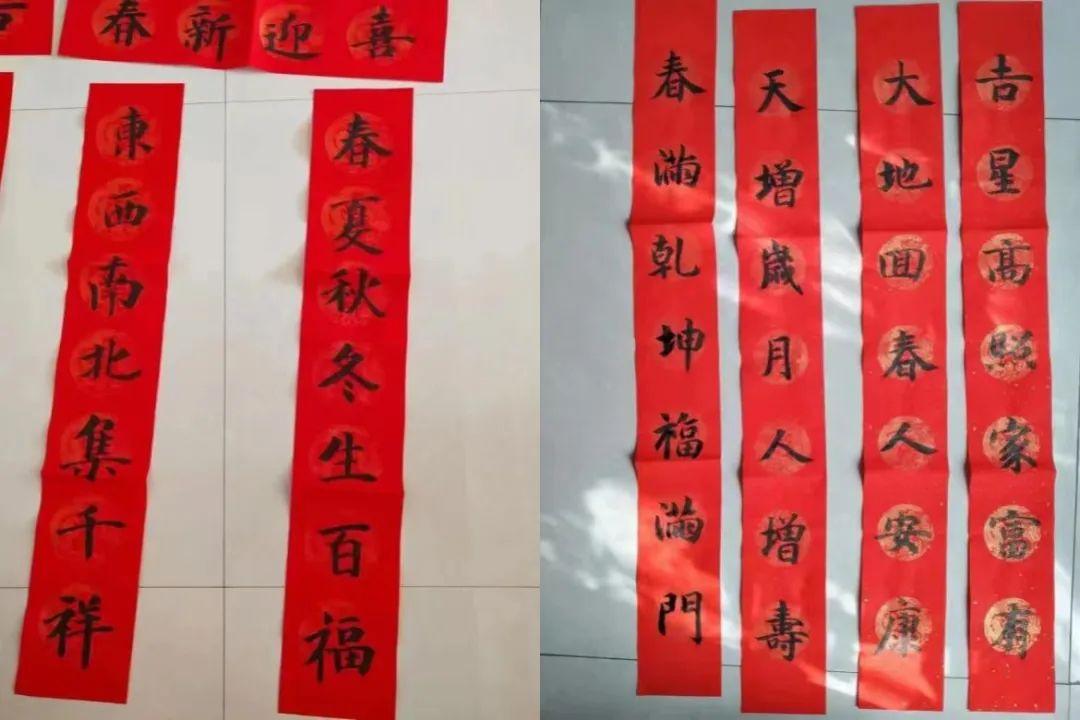 喜迎新春
春夏秋冬生百福
東西南北集千祥
吉星高照家富有
大地回春人安康
天增歲月人增壽
春滿乾坤福滿門